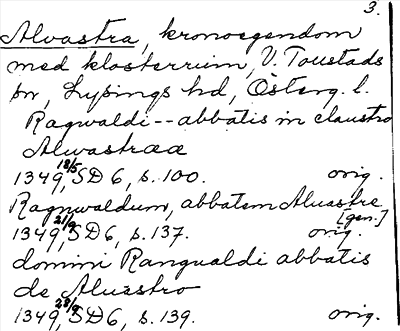 3.
Alvastra, kronoegendom
med klosterruin, V. Toustads
sn, Lysings hd, Österg. l.
Ragwaldi -- abbatis in claustro
Alwastraæ
1349 18/5, SD 6, s. 100. orig.
Ragnwaldum, abbatem Aluastre [gen.]
1349 21/9, SD 6, s. 137. orig.
domini Rangualdi abbatis
de Aluastro
1349 28/9, SD 6, s. 139. orig.